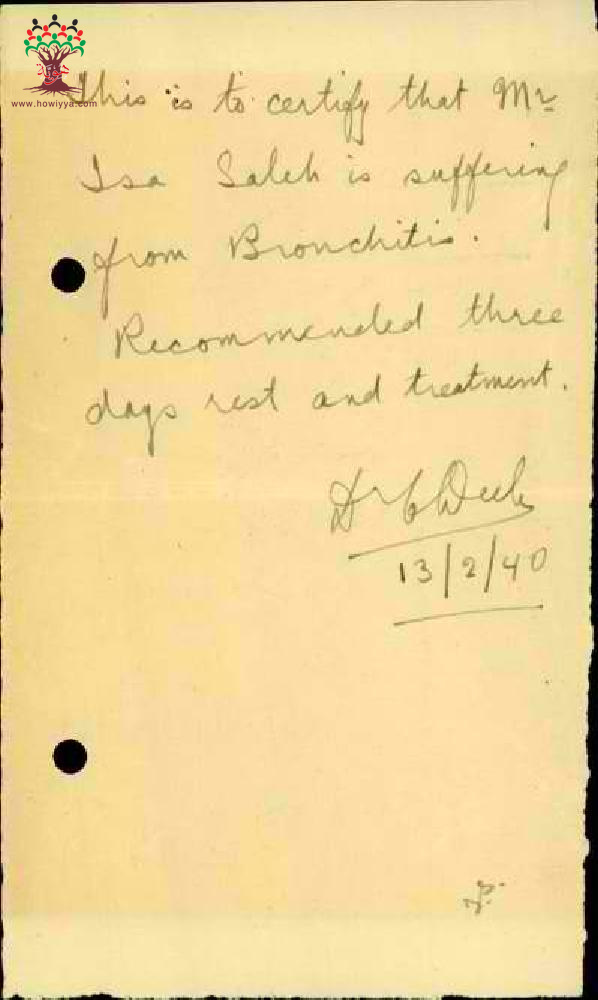 www.howiyya.com
This is to certify that Mr
Isa Saleh is suffering
from Bronchitis.
Recommended three
days rest and treatment.
Dr
13/2/40